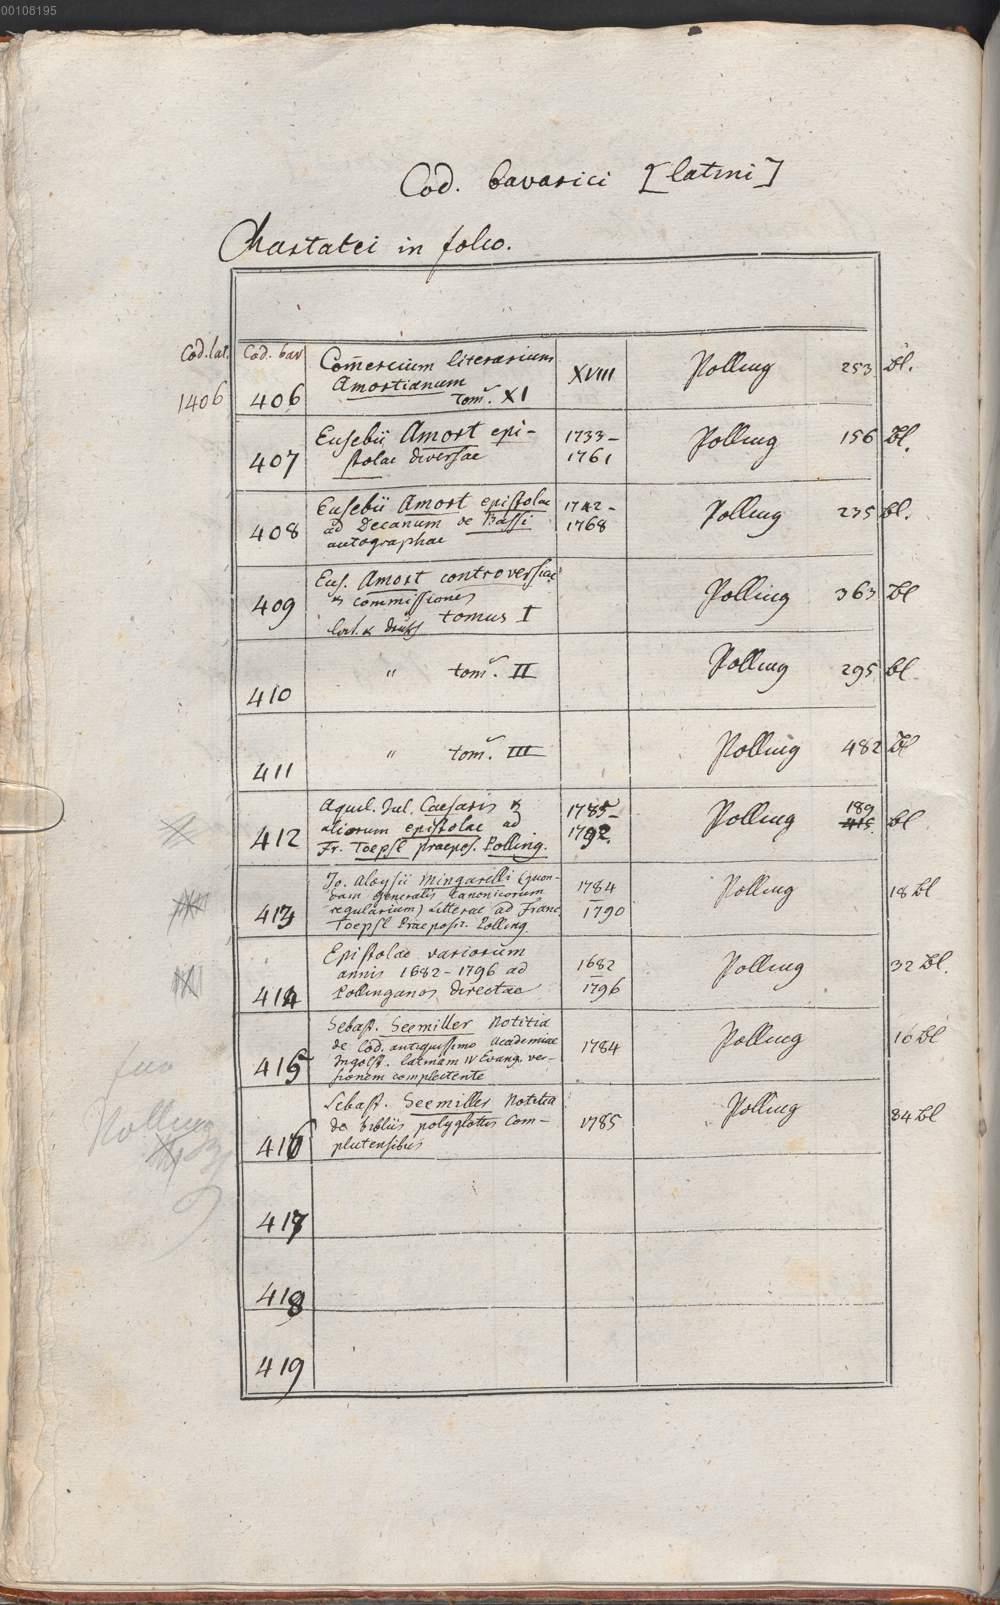 00108195
Cod. bavarici [latini]
Chartacei in folio.
Cod. lat. Cod. bav
1406 406 Com̄ercium literarium XVIII Polling 253 Bl.
Amortianum
tom. XI
407 Eusebii Amort epi- 1733- Polling 156 Bl.
stolae diversae 1761
408 Eusebii Amort epistolae 1742- Polling 235 Bl.
ad Decanum de Bassi 1768
autographae
409 Eus. Amort controversiae Polling 363 Bl
& commissiones
lat. & dtsch tomus I
410 " tom. II Polling 295 Bl.
411 " tom. III Polling 482 Bl
412 Aquil. Jul. Caesaris & 1785- Polling 189 Bl
aliorum epistolae ad 1792. 415
Fr. Toepsl praepos. Polling.
413 Jo. Aloysii Mingarelli (quon- 1784 Polling 18 Bl
dam generalis Canonicorum
regularium) Litterae ad Franc. 1790
Toepsl Praeposit. Polling.
414 Epistolae variorum 1682 Polling 32 Bl.
annis 1682-1796 ad
Pollinganos directae 1796
415 Sebast. Seemiller Notitia 1784 Polling 16 Bl
de Cod. antiquissimo Academiae
Ingolst. latinam IV Evang. ver-
sionem complectente
416 Sebast. Seemiller Notitia 1785 Polling 84 Bl
de bibliis polyglottis Com-
plutensibus
Polling
417
418
419